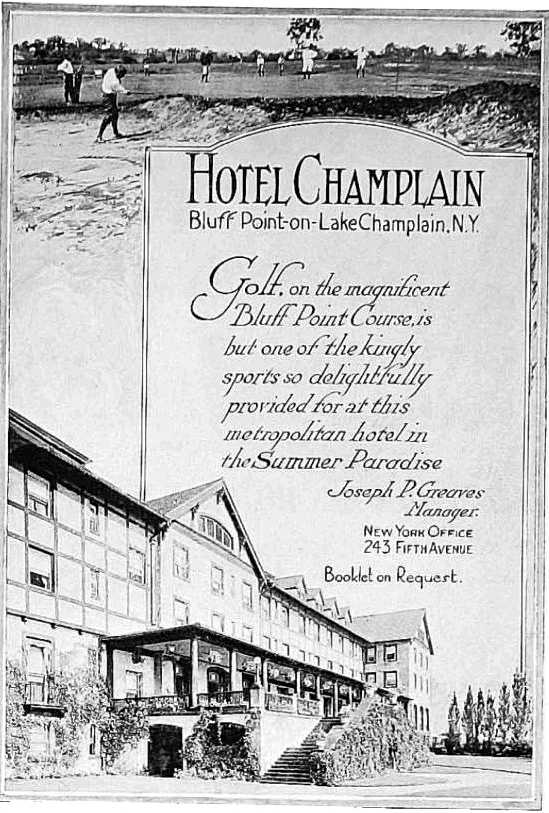 HOTEL CHAMPLAIN
Bluff Point-on-Lake Champlain, N.Y.
Golf, on the magnificent
Bluff Point Course, is
but one of the kingly
sports so delightfully
provided for at this
metropolitan hotel in
the Summer Paradise
Joseph P. Greaves
Manager.
NEW YORK OFFICE
243 FIFTH AVENUE
Booklet on Request.